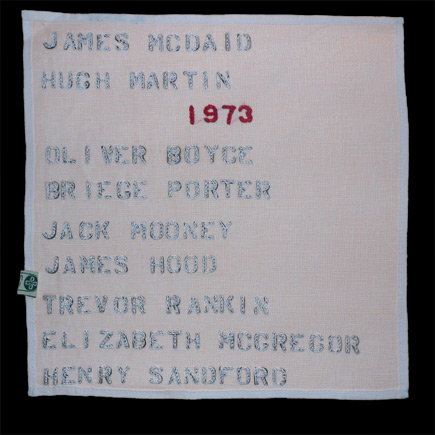 JAMES MCDAID
HUGH MARTIN
1973
OLIVER BOYCE
BRIEGE PORTER
JACK MOONEY
JAMES HOOD
TREVOR RANKIN
ELIZABETH MCGREGOR
HENRY SANDFORD